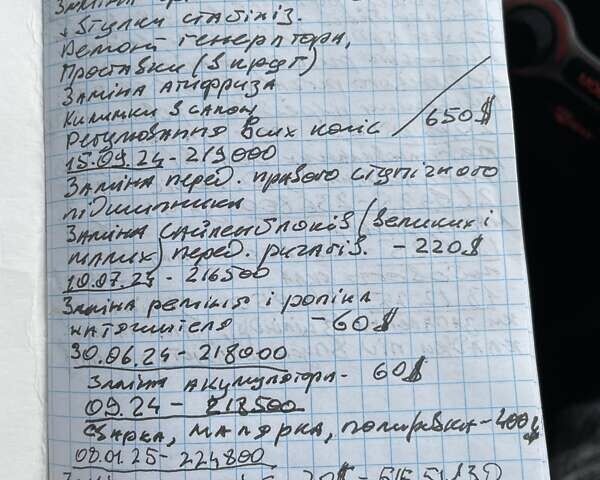 Заміна
втулки стабіліз.
Ремонт генератора,
Проставки (в круг)
Заміна атифриза
Килимки в салон
Регулювання всіх коліс 650$
15.09.24 - 219000
Заміна перед. правого ступічного
підшипника
Заміна сайленблоків (великих і
малих) перед. ричагів. - 220$
10.07.24 - 216500
Заміна ременів і роліка
натяжителя - 60$
30.06.24 - 218000
Заміна акумулятора - 60$
09.24 - 218500
Сварка, малярка, поліровка - 400$
08.01.25 - 224800
20$